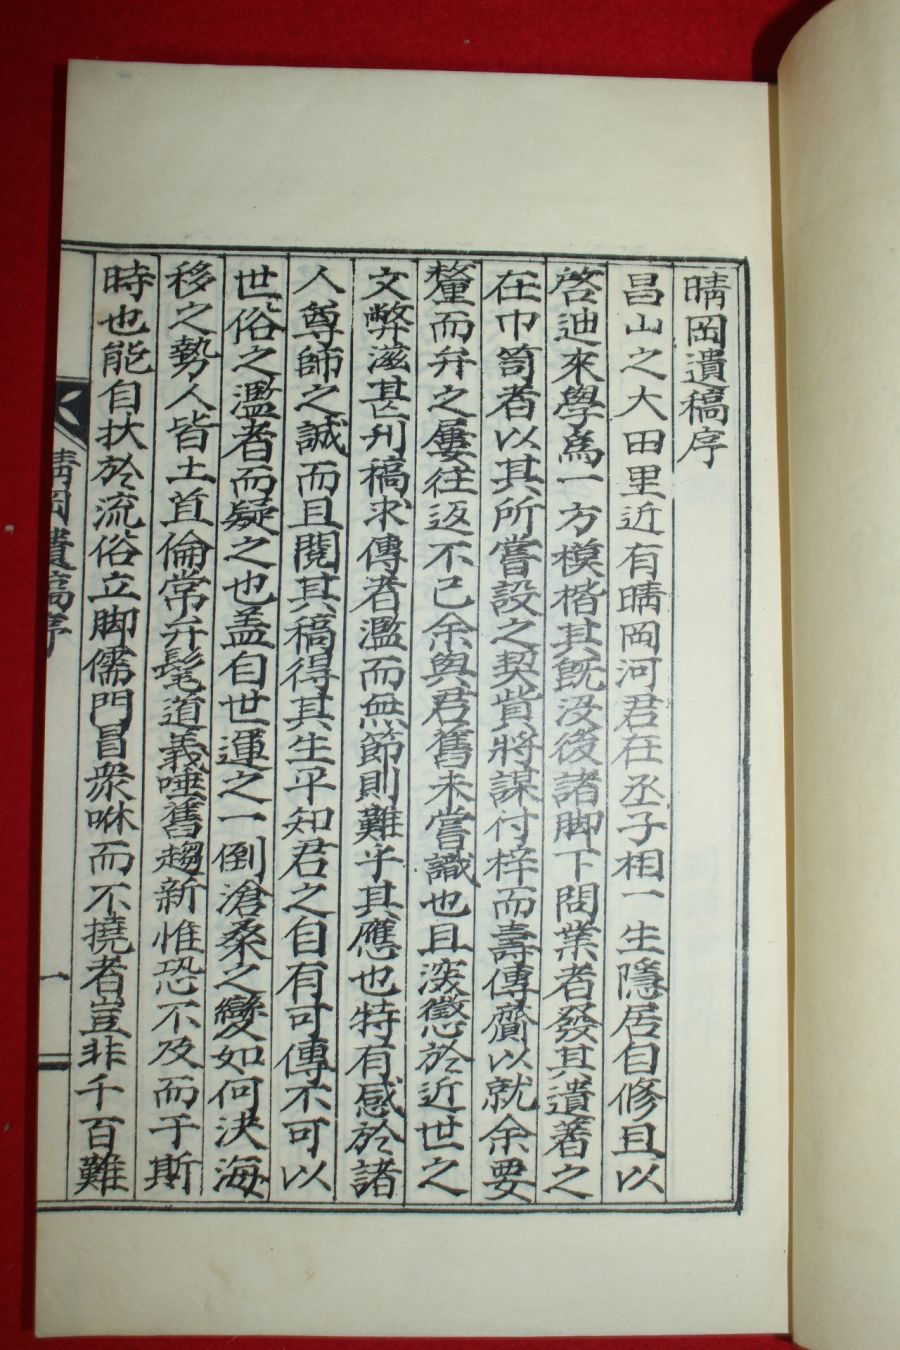 晴岡遺稿序
昌山之大田里近有晴岡河君在丞子相一生隱居自修且以
啓迪來學爲一方模楷其旣沒後諸脚下問業者發其遺著之
在巾笥者以其所嘗設之契貲將謀付梓而壽傳賷以就余要
釐而弁之屢往返不已余與君舊未嘗識也且深懲於近世之
文弊滋甚刊稿求傳者濫而無節則難乎其應也特有感於諸
人尊師之誠而且閱其稿得其生平知君之自有可傳不可以
世俗之濫者而疑之也盖自世運之一倒滄桑之變如何決海
移之勢人皆土苴倫常弁髦道義唾舊趨新惟恐不及而于斯
時也能自扶於流俗立脚儒門冒衆咻而不撓者豈非千百難
晴岡遺稿序
一